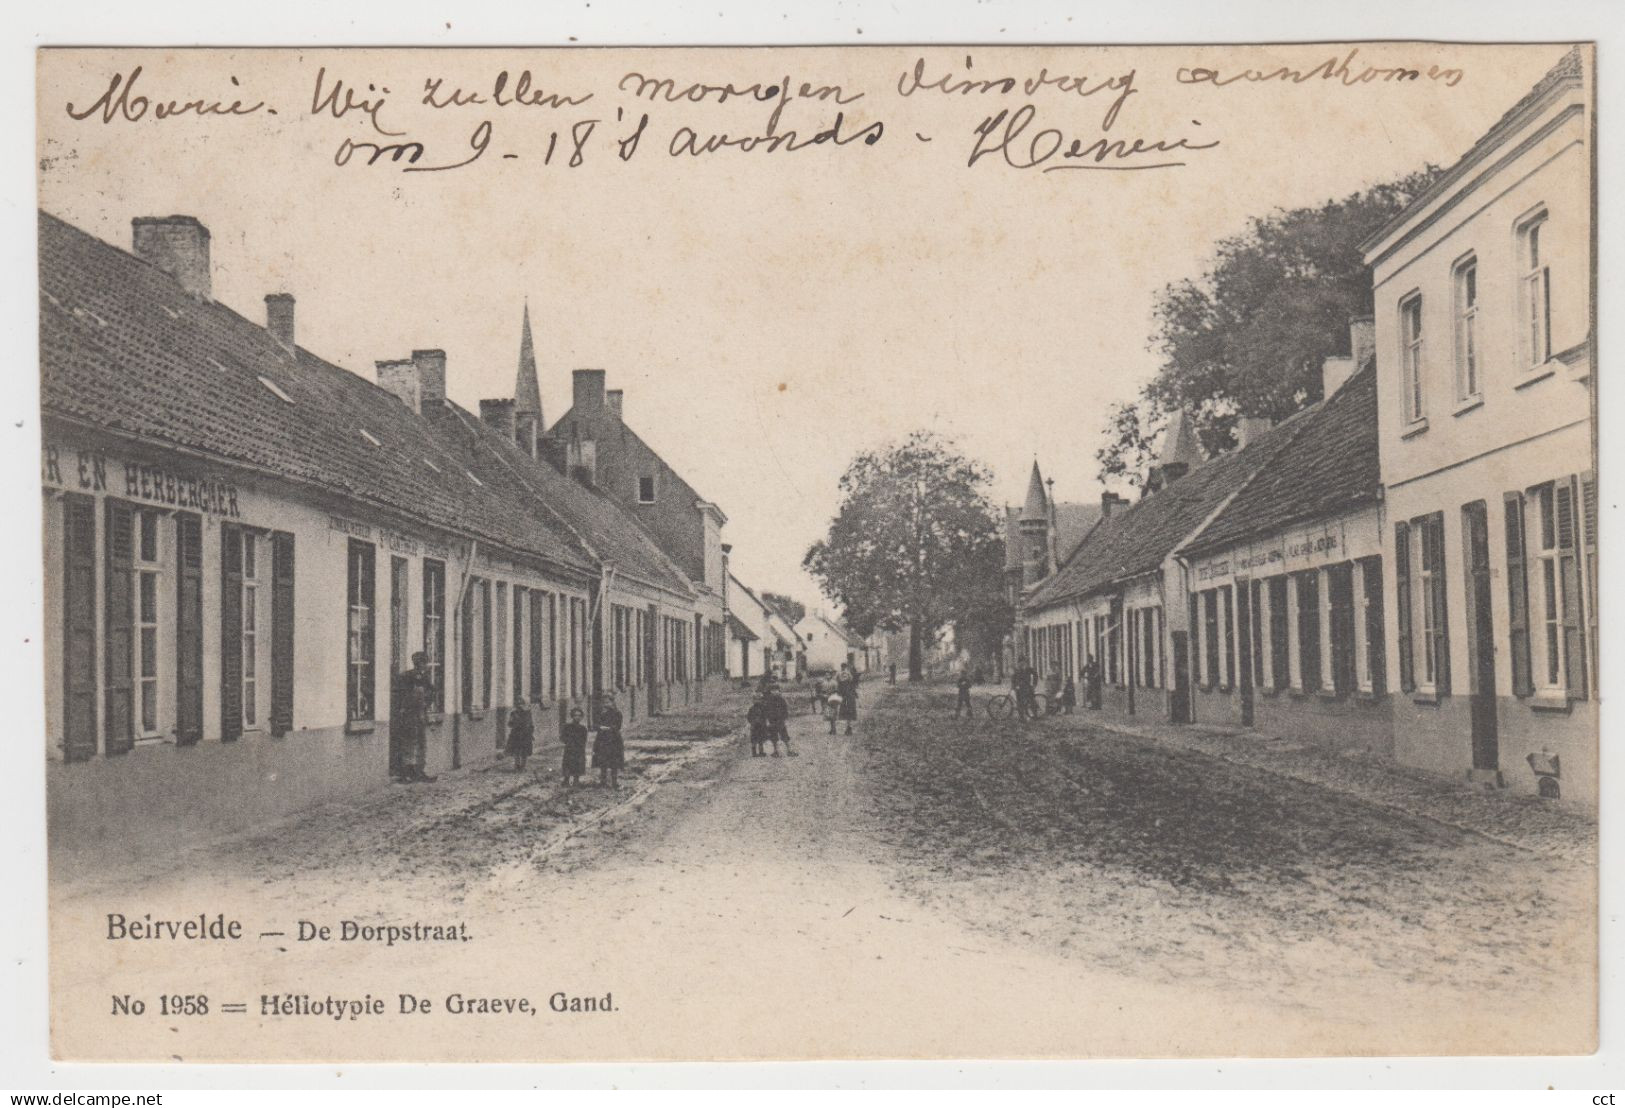 Marie. Wij zullen morgen dinsdag aankomen
om 9 - 18 's avonds - Henri
R EN HERBERGIER
Beirvelde — De Dorpstraat.
No 1958 = Héliotypie De Graeve, Gand.
delcampe.net
cct